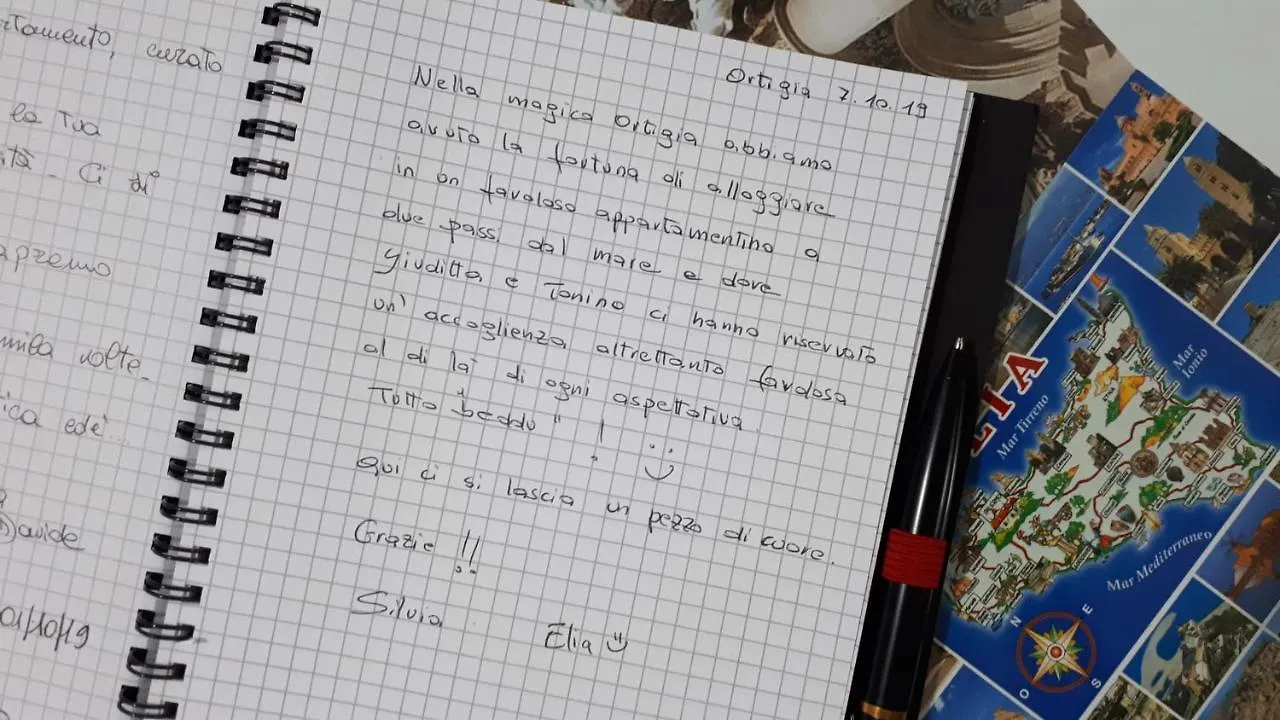 rtamento, curato
la tua
ità - Ci di
apremo
mila volte -
ica ed è...
Davide
Ortigia 7.10.19
Nella magica Ortigia abbiamo
avuto la fortuna di alloggiare
in un favoloso appartamentino a
due passi dal mare e dove
Giuditta e Tonino ci hanno riservato
un' accoglienza altrettanto favolosa
al di là di ogni aspettativa.
Tutto beddu" ! :)
Qui ci si lascia un pezzo di cuore.
Grazie !!
Silvia Elia
LIA
Mar Tirreno
Mar Ionio
Mar Mediterraneo
N
E
O
S